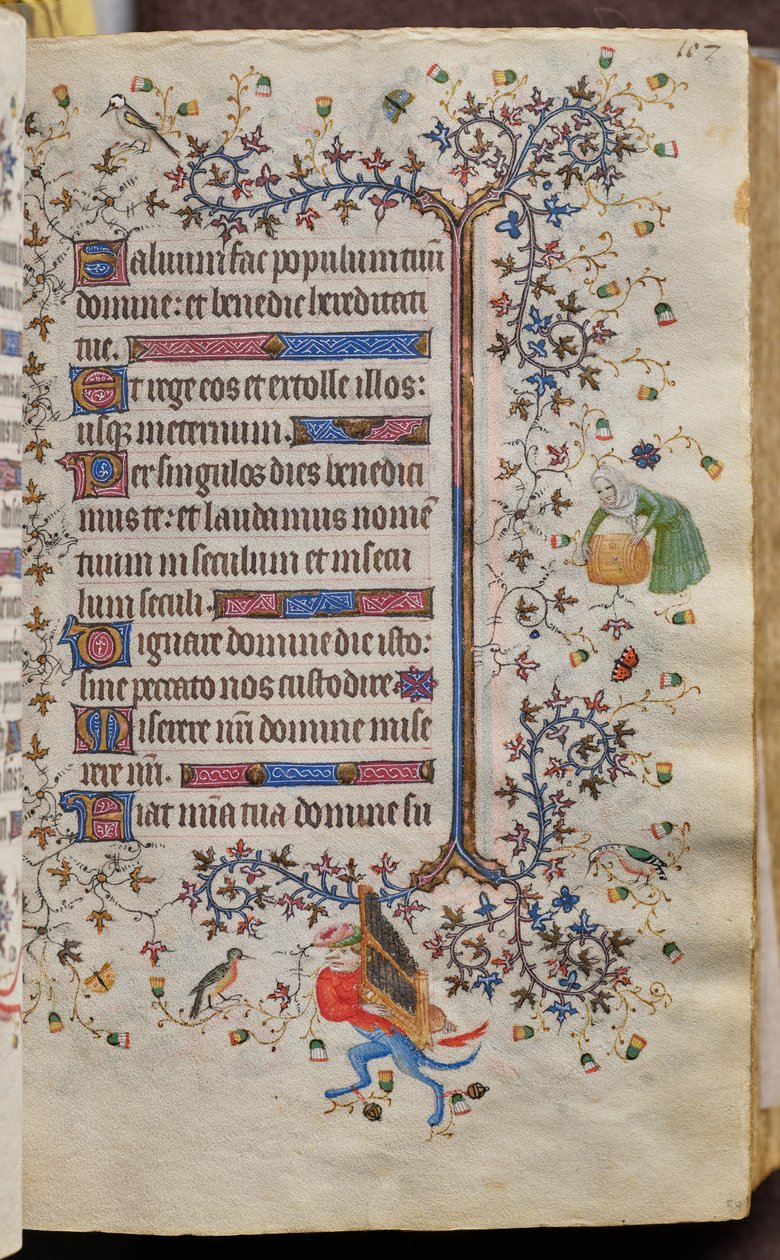 187
Saluum fac populum tuū
domine: et benedic hereditati
tue.
Et rege eos et extolle illos:
usqȝ in eternum.
Per singulos dies benedici
mus te: et laudamus nomē
tuum in seculum et in secu
lum seculi.
Dignare domine die isto:
sine peccato nos custodire.
Miserere nr̄i domine mise
rere nr̄i.
Fiat mīa tua domine su